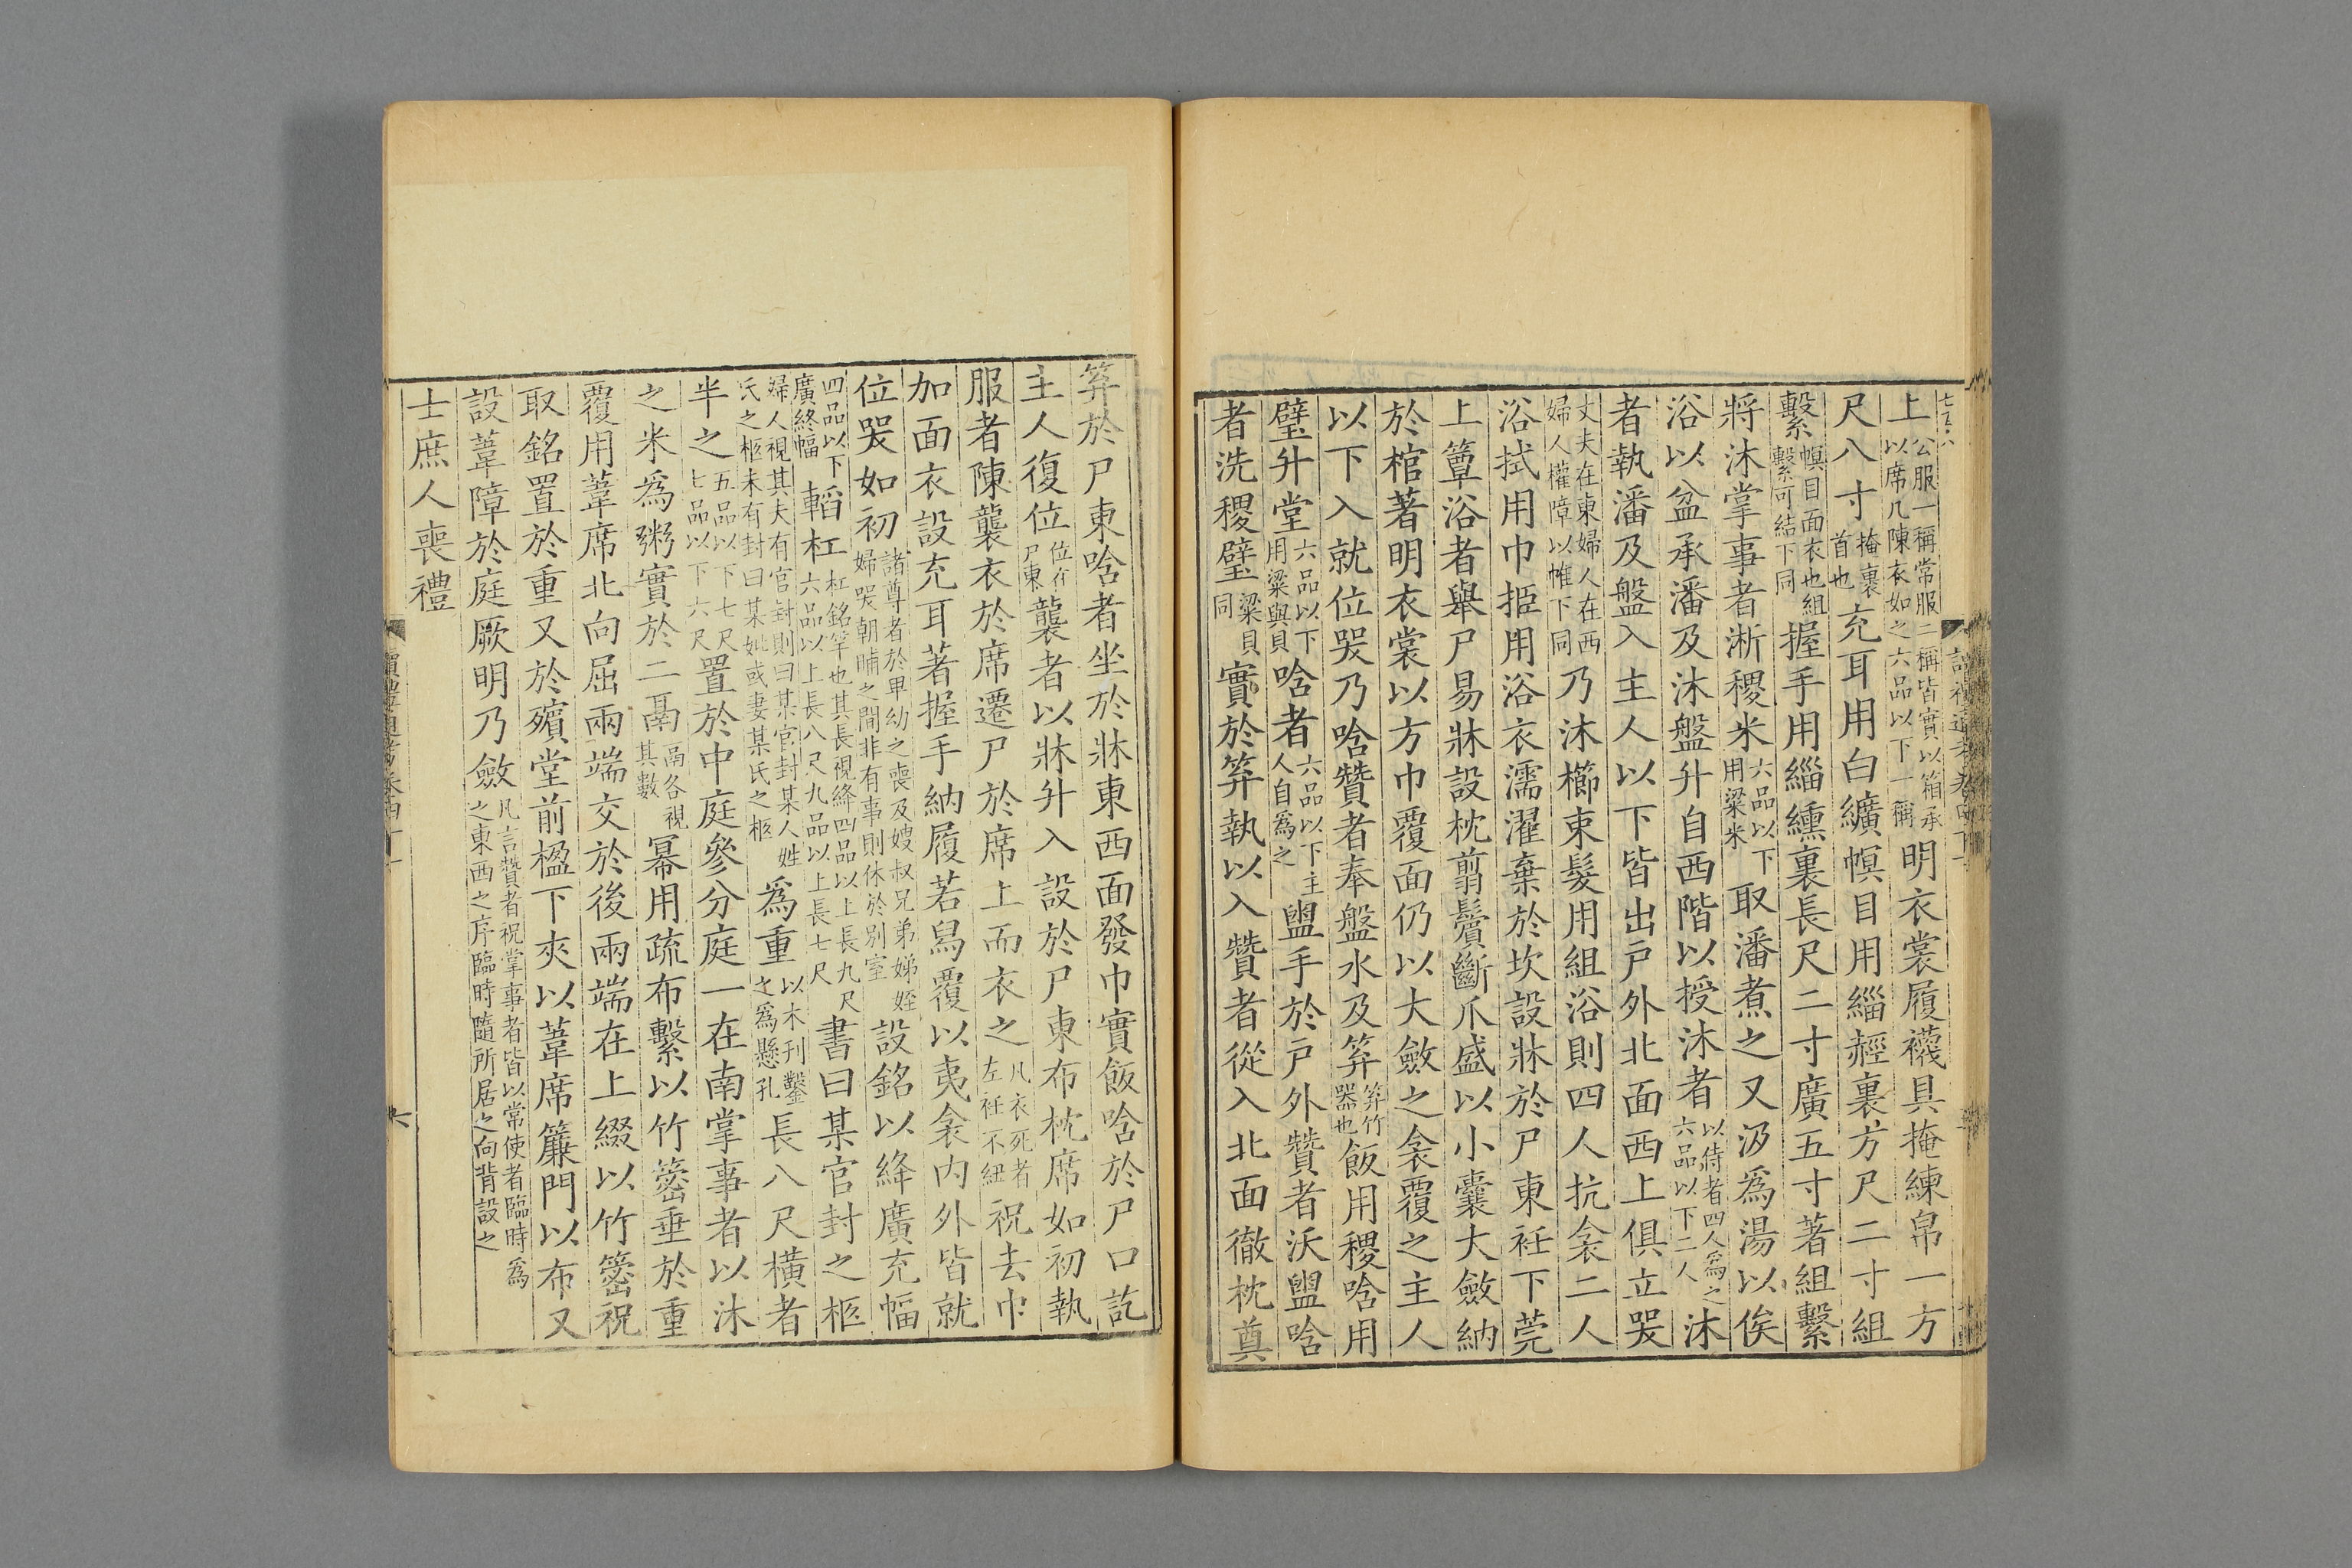 上公服一稱常服二稱皆實以箱承以席几陳衣如之六品以下一稱明衣裳履襪具掩練帛一方
尺八寸掩裏首也充耳用白纊幎目用緇䞓裏方尺二寸組
繫幎目面衣也組繫可結下同握手用緇纁裏長尺二寸廣五寸著組繫
將沐掌事者淅稷米六品以下用粱米取潘煮之又汲爲湯以俟
浴以盆承潘及沐盤升自西階以授沐者以侍者四人爲之六品以下二人沐
者執潘及盤入主人以下皆出戶外北面西上俱立哭
丈夫在東婦人在西婦人權障以帷下同乃沐櫛束髮用組浴則四人抗衾二人
浴拭用巾挋用浴衣濡濯棄於坎設牀於尸東衽下莞
上簟浴者舉尸易牀設枕翦鬢斷爪盛以小囊大斂納
於棺著明衣裳以方巾覆面仍以大斂之衾覆之主人
以下入就位哭乃唅贊者奉盤水及笲笲竹器也飯用稷唅用
璧升堂六品以下用粱與貝唅者六品以下主人自爲之盥手於戶外贊者沃盥唅
者洗稷璧粱貝同實於笲執以入贊者從入北面徹枕奠
笲於尸東唅者坐於牀東西面發巾實飯唅於尸口訖
主人復位位在尸東襲者以牀升入設於尸東布枕席如初執
服者陳襲衣於席遷尸於席上而衣之凡衣死者左衽不紐祝去巾
加面衣設充耳著握手納履若舄覆以夷衾內外皆就
位哭如初諸尊者於卑幼之喪及嫂叔兄弟娣姪婦哭朝晡之間非有事則休於別室設銘以絳廣充幅
四品以下廣終幅韜杠杠銘竿也其長視絳四品以上長九尺六品以上長八尺九品以上長七尺書曰某官封之柩
婦人視其夫有官封則曰某官封某人姓氏之柩未有封曰某妣或妻某氏之柩爲重以木刊鑿之爲懸孔長八尺橫者
半之五品以下七尺七品以下六尺置於中庭參分庭一在南掌事者以沐
之米爲粥實於二鬲鬲各視其數冪用疏布繫以竹䈼垂於重
覆用葦席北向屈兩端交於後兩端在上綴以竹䈼祝
取銘置於重又於殯堂前楹下夾以葦席簾門以布又
設葦障於庭厥明乃斂凡言贊者祝掌事者皆以常使者臨時爲之東西之序臨時隨所居之向背設之
士庶人喪禮